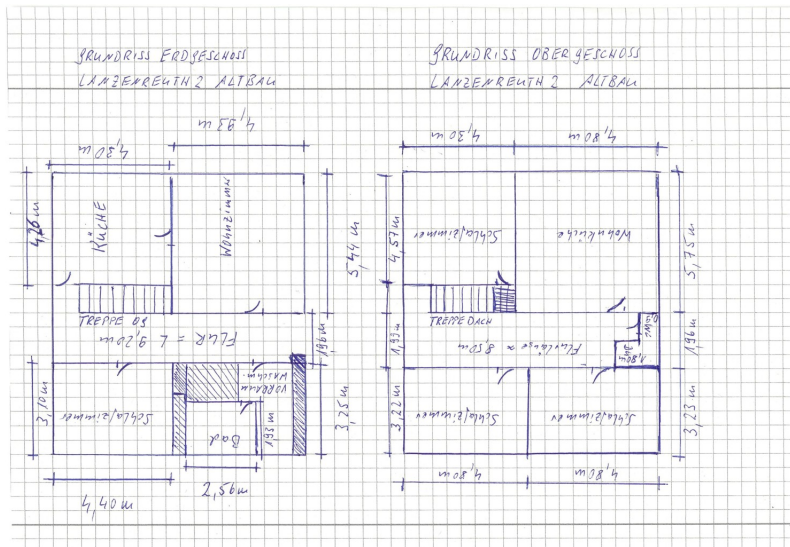 GRUNDRISS ERDGESCHOSS
LANZENREUTH 2 ALTBAU
4,30 m
4,93 m
4,26 m
KÜCHE
Wohnzimmer
5,44 m
TREPPE OG
FLUR = L 9,20 m
1,96 m
3,10 m
Schlafzimmer
VORRAUM
WASCHM.
Bad
1,93 m
3,25 m
4,40 m
2,56 m
GRUNDRISS OBERGESCHOSS
LANZENREUTH 2 ALTBAU
4,30 m
4,80 m
4,57 m
Schlafzimmer
Wohnküche
5,75 m
TREPPE DACH
1,93 m
Flurlänge ≈ 8,50 m
1,80 m
1,96 m
3,22 m
Schlafzimmer
Schlafzimmer
3,23 m
4,80 m
4,80 m